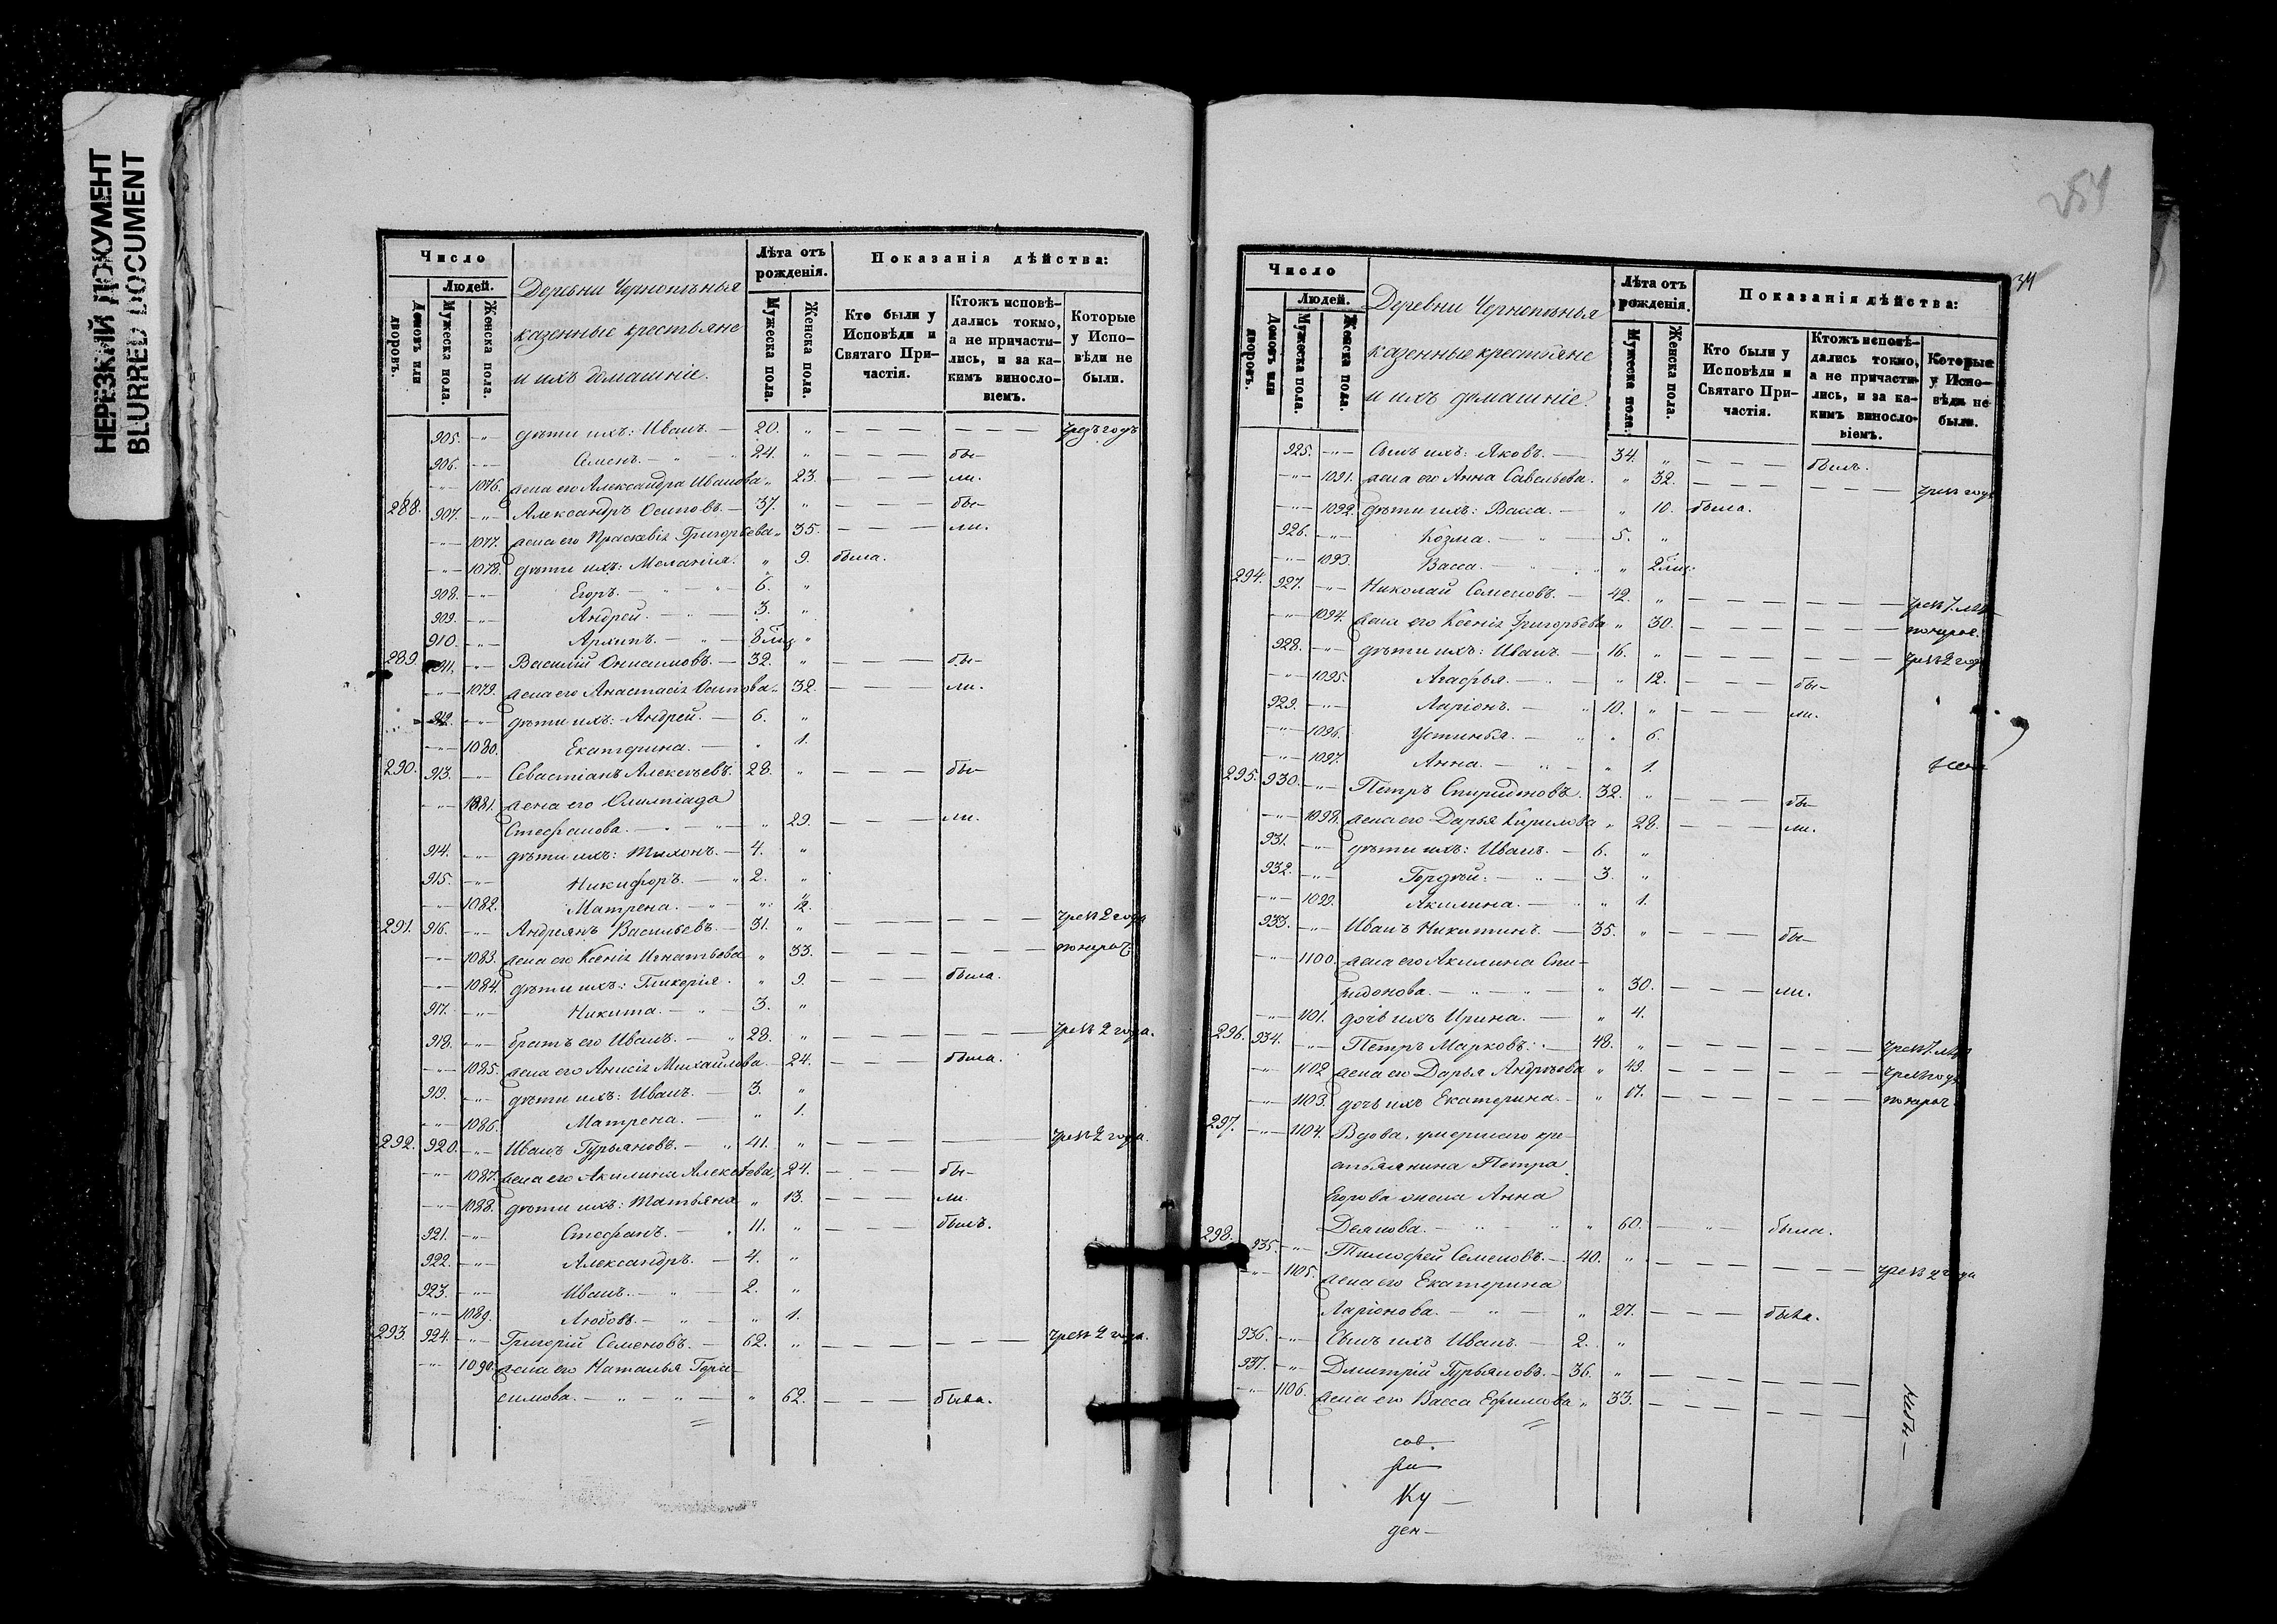 НЕРЕЗКИЙ ДОКУМЕНТ
BLURRED DOCUMENT
Число
Людей.
Домовъ или дворовъ.
Мужеска пола.
Женска пола.
Деревни Чернопѣнья
казенные крестьяне
и ихъ домашніе.
Лѣта отъ рожденія.
Мужеска пола.
Женска пола.
Показанія дѣйства:
Кто были у Исповѣди и Святаго Причастія.
Ктожъ исповѣдались токмо, а не причастились, и за какимъ винословіемъ.
Которые у Исповѣди не были.
905. дѣти ихъ: Иванъ. 20. чрезъ годъ
906. Семенъ. 24. бы-
1076. жена его Александра Иванова 23. ли.
288. 907. Александръ Осиповъ. 37. бы-
1077. жена его Праскевія Григорьева 35. ли.
1078. дѣти ихъ: Меланія. 9. была.
908. Егоръ. 6.
909. Андрей. 3.
910. Архипъ. 8 мѣ.
289. 911. Василій Онисимовъ. 32. бы-
1079. жена его Анастасія Осипова. 32. ли.
912. дѣти ихъ: Андрей. 6.
1080. Екатерина. 1.
290. 913. Севастіанъ Алексѣевъ. 28. бы-
1081. жена его Олимпіада
Стефанова. 29. ли.
914. дѣти ихъ: Тихонъ. 4.
915. Никифоръ. 2.
1082. Матрена. 12.
291. 916. Андреянъ Васильевъ. 31. чрезъ 2 года
1083. жена его Ксенія Игнатьева 33. по нероч.
1084. дѣти ихъ: Гликерія. 9. была.
917. Никита. 3.
918. братъ его Иванъ. 28. чрезъ 2 года.
1085. жена его Анисія Михайлова. 24. была.
919. дѣти ихъ: Иванъ. 3.
1086. Матрена. 1.
292. 920. Иванъ Гурьяновъ. 41. чрезъ 2 года.
1087. жена его Акилина Алексѣева, 24. бы-
1088. дѣти ихъ: Татьяна 13. ли.
921. Стефанъ. 11. былъ.
922. Александръ. 4.
923. Иванъ. 2.
1089. Любовь. 1.
293. 924. Григорій Семеновъ. 62. чрезъ 2 года.
1090. жена его Наталья Гера-
симова. 62. была.
254
34
Число
Людей.
Домовъ или дворовъ.
Мужеска пола.
Женска пола.
Деревни Чернопѣнья
казенные крестьяне
и ихъ домашніе.
Лѣта отъ рожденія.
Мужеска пола.
Женска пола.
Показанія дѣйства:
Кто были у Исповѣди и Святаго Причастія.
Ктожъ исповѣдались токмо, а не причастились, и за какимъ винословіемъ.
Которые у Исповѣди не были.
925. Сынъ ихъ: Яковъ. 34. былъ.
1091. жена его Анна Савельева. 32. чрезъ годъ
1092. дѣти ихъ: Васса. 10. была.
926. Козма. 5.
1093. Васса. 2 мѣ.
294. 927. Николай Семеновъ. 42. чрезъ 7. лѣ
1094. жена его Ксенія Григорьева 30. по нероч.
928. дѣти ихъ: Иванъ. 16. чрезъ 2 года
1095. Агафья. 12. бы-
929. Ларіонъ. 10. ли.
1096. Устинья. 6.
1097. Анна. 1.
295. 930. Петръ Спиридоновъ. 32. бы-
1098. жена его Дарья Кирилова 28. ли.
931. дѣти ихъ: Иванъ. 6.
932. Гордѣй. 3.
1099. Акилина. 1.
933. Иванъ Никитинъ. 35. бы-
1100. жена его Акилина Спи-
ридонова. 30. ли.
1101. дочь ихъ Ирина. 4.
296. 934. Петръ Марковъ. 48. чрезъ 7. лѣ
1102 жена его Дарья Андреева 49. чрезъ годъ
1103. дочь ихъ Екатерина. 17. по нероч.
297. 1104. Вдова, умершаго кре-
стьянина Петра
Егорова жена Анна
Деянова. 60. была.
298. 935. Тимофей Семеновъ. 40. чрезъ 2 года
1105. жена его Екатерина
Ларіонова. 27. была.
936. Сынъ ихъ Иванъ. 2.
937. Дмитрій Гурьяновъ. 36.
1106. жена его Васса Ефимова 33.
Ку-
ден-